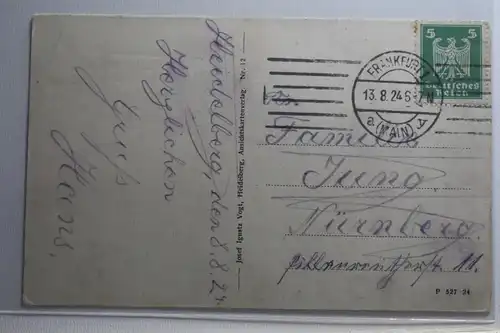 Heidelberg, den 8.8.24.
Herzlichen
Gruß
Hans.
Josef Ignatz Vogt, Heidelberg, Ansichtskartenverlag Nr. 12
5 5
Deutsches
Reich
FRANKFURT
13.8.24
a (MAIN) A
Familie
Jung
Nürnberg
11.
P 527 24